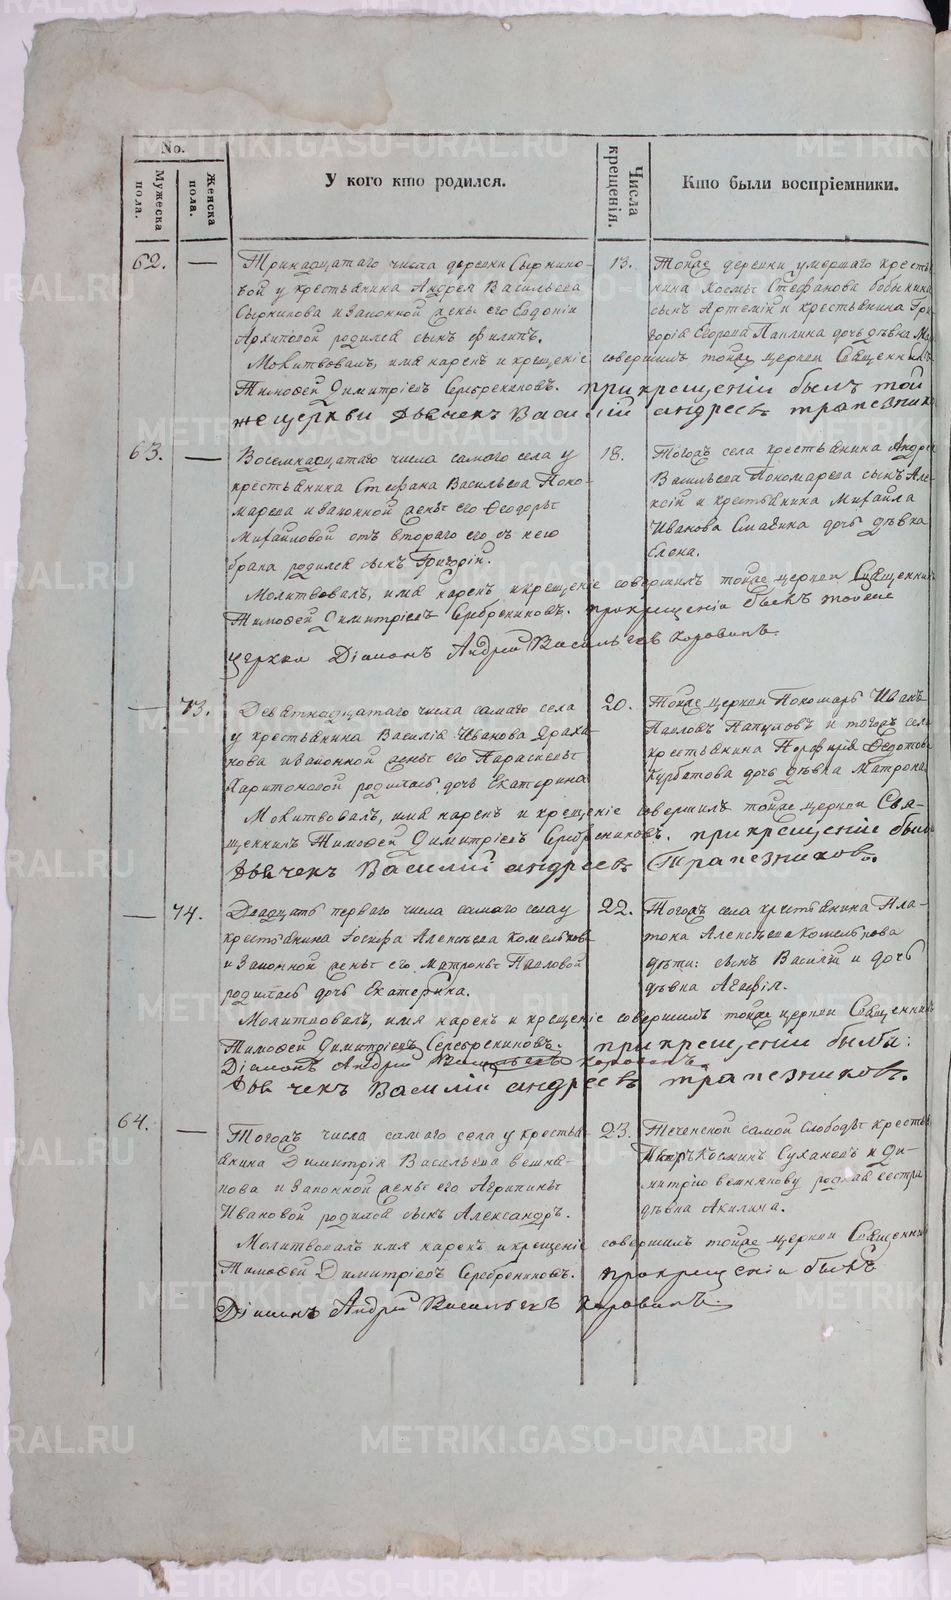 No.
Мужеска пола.
Женска пола.
У кого кто родился.
Числа крещенія.
Кто были воспріемники.
62. — Тринадцатаго числа деревни Сырнико-
вой у крестьянина Андрея Васильева
Сырникова и законной жены его Евдокіи
Архиповой родился сынъ Филипъ.
13. Тойже деревни умершаго кресть-
янина Космы Стефанова бобыкина
сынъ Артемій и крестьянина Гри-
горія Егорова Паплина дочь дѣвка
Молитвовалъ, имя нарекъ и крещеніе совершилъ тойже церкви Священникъ
Тимофей Димитріевъ Серебрениковъ. при крещеніи былъ той
же церкви дьячекъ Василій андреевъ трапезник
63. — Восемнадцатаго числа самаго села у
крестьянина Стефана Васильева Поно-
марева и законной жены его Феодоры
Михайловой отъ втораго его съ нею
брака родился сынъ Григорій.
18. Тогожъ села крестьянина Андре
Васильева Пономарева сынъ Але-
ксій и крестьянина Михайла
Иванова Смагина дочь дѣвка
Елена.
Молитвовалъ, имя нарекъ, и крещеніе совершилъ тойже церкви Священник
Тимофей Димитріевъ Серебрениковъ. прикрещеніи былъ тойже
церкви Діаконъ Андрей Васильевъ Коровинъ.
— 73. Девятнадцатаго числа самаго села
у крестьянина Василія Иванова
и законной жены его Параскевы
Харитоновой родилась дочь Екатерина
20. Тойже церкви Пономарь Иванъ
Павловъ и тогожъ села
крестьянина Порфирія Федотова
Курбатова дочь дѣвка Матрона
Молитвовалъ, имя нарекъ и крещеніе совершилъ тойже церкви Свя-
щенникъ Тимофей Димитріевъ Серебрениковъ. при крещеніи был
дьячекъ Василій андреевъ Трапезниковъ.
— 74. Двадцать перваго числа самаго села у
крестьянина Іосифа Алексѣева Комельков
и законной жены его Матроны Павловой
родилась дочь Екатерина.
22. Тогожъ села крестьянина Пла-
тона Алексѣева Комелькова
дѣти: сынъ Василій и дочь
дѣвка Агафія.
Молитвовалъ, имя нарекъ и крещеніе совершилъ тойже церкви Священник
Тимофей Димитріевъ Серебрениковъ. при крещеніи были:
Діаконъ Андрей Васильевъ Коровинъ
дьячекъ Василій андреевъ трапезниковъ.
64. — Тогожъ числа самаго села у кресть-
янина Димитрія Васильева вешня-
кова и законной жены его Агрипины
Ивановой родился сынъ Александръ.
23. Теченской самой слободы кресть
Петръ Космин Сухановъ и Ди-
митрію вешнякову родная сестра
дѣвка Акилина.
Молитвовалъ имя нарекъ и крещеніе совершилъ тойже церкви Священник
Тимофей Димитріевъ Серебрениковъ. прикрещеніи былъ
Діаконъ Андрей Васильевъ Коровинъ.
METRIKI.GASO-URAL.RU